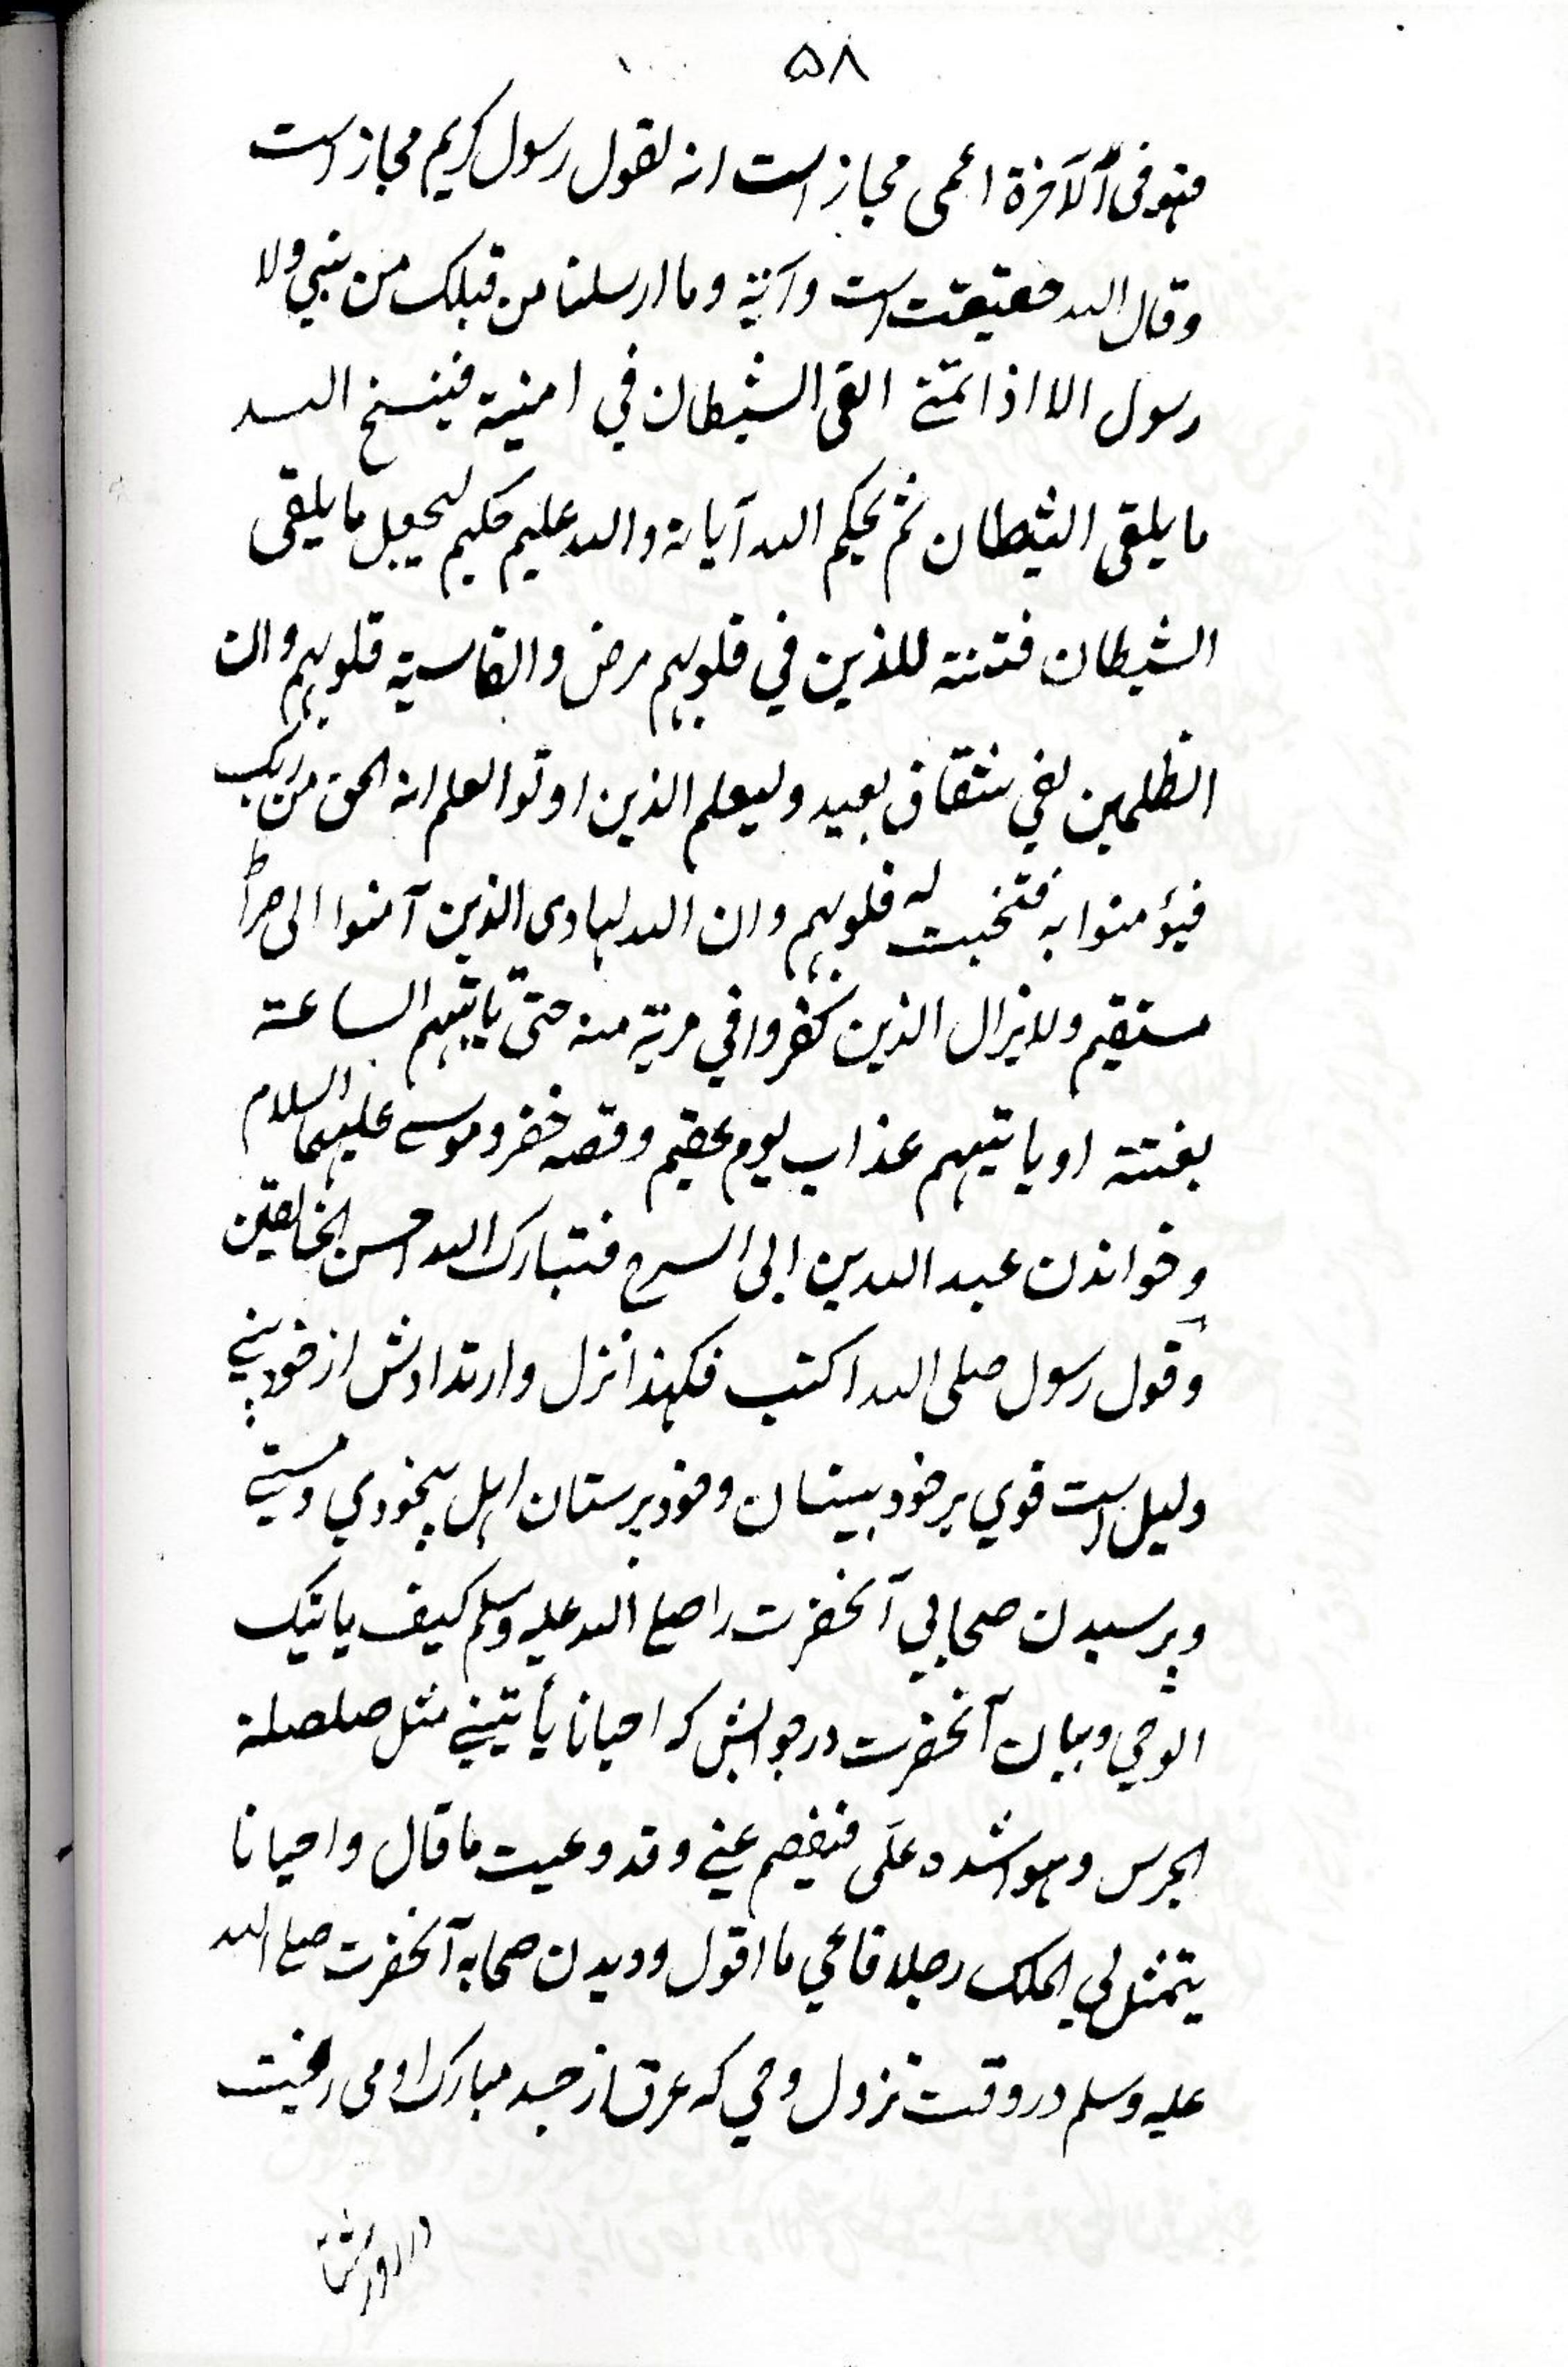 ۵۸
فهو فی الآخرة اعمی مجاز است انه لقول رسول کریم مجاز است
و قال الله حقیقت است و آیة و ما ارسلنا من قبلک من نبی و لا
رسول الا اذا تمنے القی الشیطان فی امنیة فینسخ الله
ما یلقی الشیطان ثم یحکم الله آیاته و الله علیم حکیم لیجعل ما یلقی
الشیطان فتنته للذین فی قلوبهم مرض و القاسیة قلوبهم و ان
الظلمین لفی شقاق بعید و لیعلم الذین اوتوا العلم انه الحق من ربک
فیؤمنوا به فتخبت له قلوبهم و ان الله لهادی الذین آمنوا الی صراط
مستقیم و لا یزال الذین کفروا فی مریة منه حتی تاتیهم الساعة
بغتته او یاتیهم عذاب یوم عقیم و قصه خضر و موسے علیهما السلام
و خواندن عبد الله بن ابی السرح فتبارک الله احسن الخالقین
و قول رسول صلی الله اکتب فکهذا نزل و ارتدادش از خودبینے
دلیل است قوی بر خود بینان و خود پرستان اهل بیخودی و مستے
و پرسیدن صحابی آنحضرت را صلے الله علیه وسلم کیف یاتیک
الوحی و بیان آنحضرت در جوابش که احیانا یأتینے مثل صلصلة
الجرس و هو اشده علَی فیفصم عنے و قد وعیت ما قال و احیانا
یتمثل لی الملک رجلا فاعی ما اقول و دیدن صحابه آنحضرت صلے الله
علیه وسلم در وقت نزول وحی که عرق از جسد مبارک او می ریخت